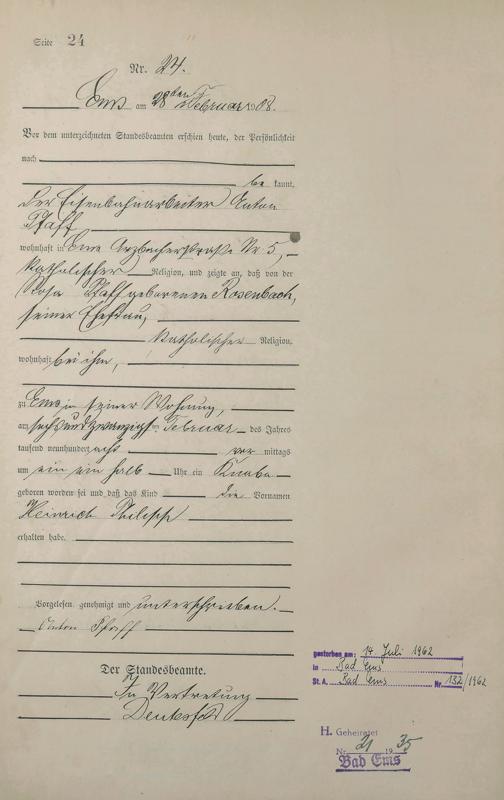 Seite 24
Nr. 24.
Ems am 28ten Februar 1908.
Vor dem unterzeichneten Standesbeamten erschien heute, der Persönlichkeit
nach
be kannt,
der Eisenbahnarbeiter Anton
Pfaff
wohnhaft in Ems Arzbacherstraße Nr. 5,
katholischer Religion, und zeigte an, daß von der
Rosa Pfaff geborenen Rosenbach,
seiner Ehefrau,
katholischer Religion,
wohnhaft bei ihm,
zu Ems in seiner Wohnung,
am sechsundzwanzigsten Februar des Jahres
tausend neunhundert acht vor mittags
um ein ein halb Uhr ein Knabe
geboren worden sei und daß das Kind die Vornamen
Heinrich Philipp
erhalten habe.
Vorgelesen, genehmigt und unterschrieben.
Anton Pfaff
Der Standesbeamte.
In Vertretung
gestorben am: 14 Juli 1962
in Bad Ems
St. A. Bad Ems Nr. 132/1962
H. Geheiratet
Nr. 21 1935
Bad Ems